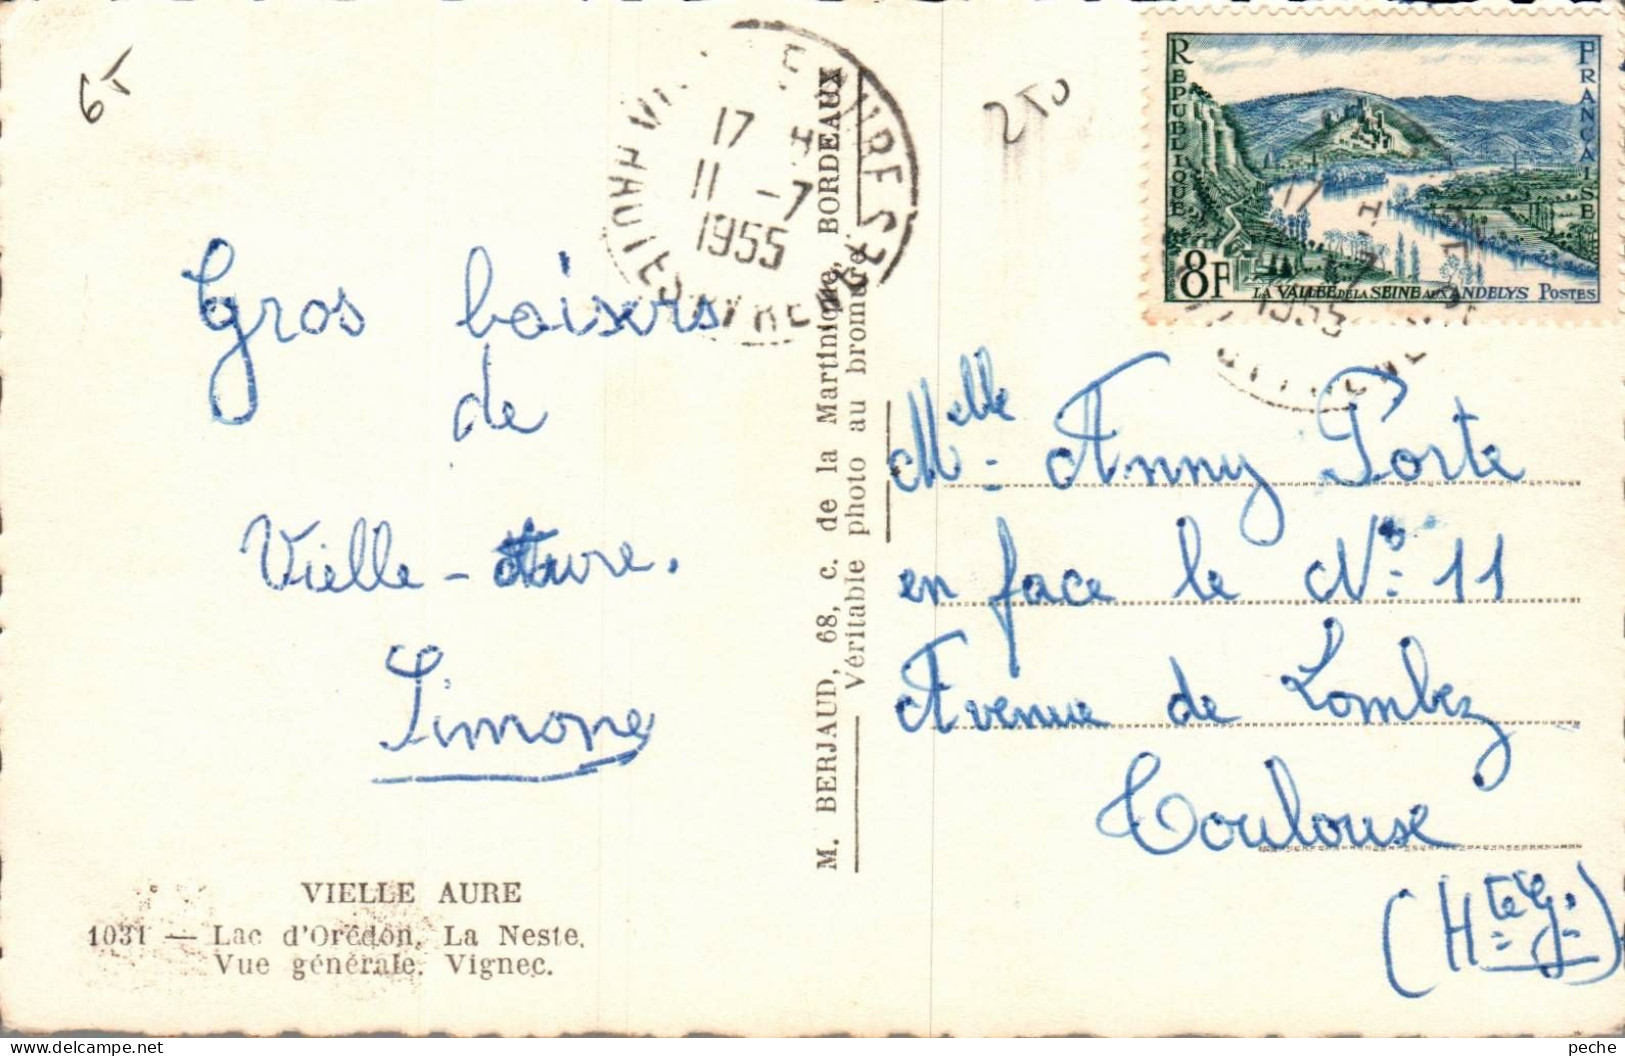 65
Gros baisers
de
Vielle-Aure.
Simone
VIELLE AURE
1031 — Lac d'Orédon. La Neste.
Vue générale. Vignec.
M. BERJAUD, 68, c. de la Martinique, BORDEAUX
Véritable photo au bromure
17 H
11 -7
1955
HAUTES PYRENEES
250
REPUBLIQUE FRANÇAISE
8F
LA VALLÉE DE LA SEINE AUX ANDELYS POSTES
17 H
1955
Melle Anny Porte
en face le No 11
Avenue de Lombez
Toulouse
(Hte G.)
peche